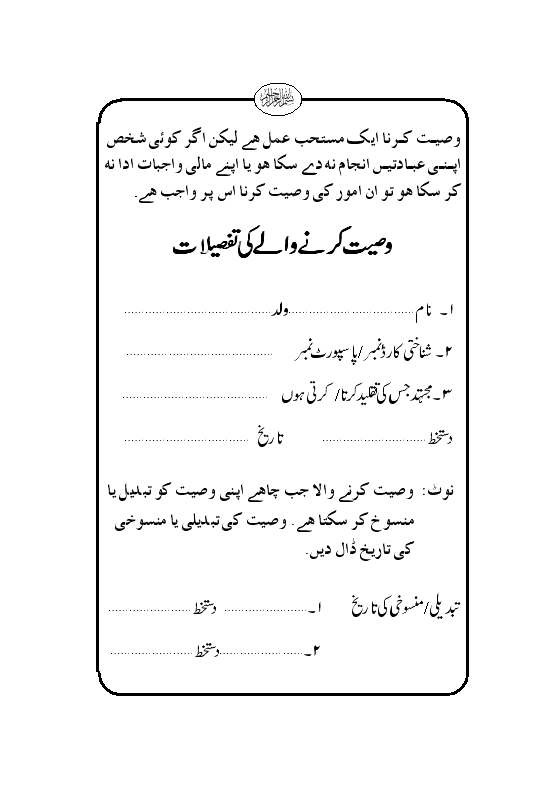 بسم الله الرحمن الرحيم
وصیت کرنا ایک مستحب عمل ہے لیکن اگر کوئی شخص
اپنی عبادتیں انجام نہ دے سکا ہو یا اپنے مالی واجبات ادا نہ
کر سکا ہو تو ان امور کی وصیت کرنا اس پر واجب ہے.
وصیت کرنے والے کی تفصیلات
۱۔ نام ........................................ ولد ........................................
۲۔ شناختی کارڈ نمبر/پاسپورٹ نمبر ........................................
۳۔ مجتہد جس کی تقلید کرتا/ کرتی ہوں ........................................
دستخط ........................................ تاریخ ........................................
نوٹ: وصیت کرنے والا جب چاہے اپنی وصیت کو تبدیل یا
منسوخ کر سکتا ہے. وصیت کی تبدیلی یا منسوخی
کی تاریخ ڈال دیں.
تبدیلی/منسوخی کی تاریخ ۱۔ ........................ دستخط ........................
۲۔ ........................ دستخط ........................